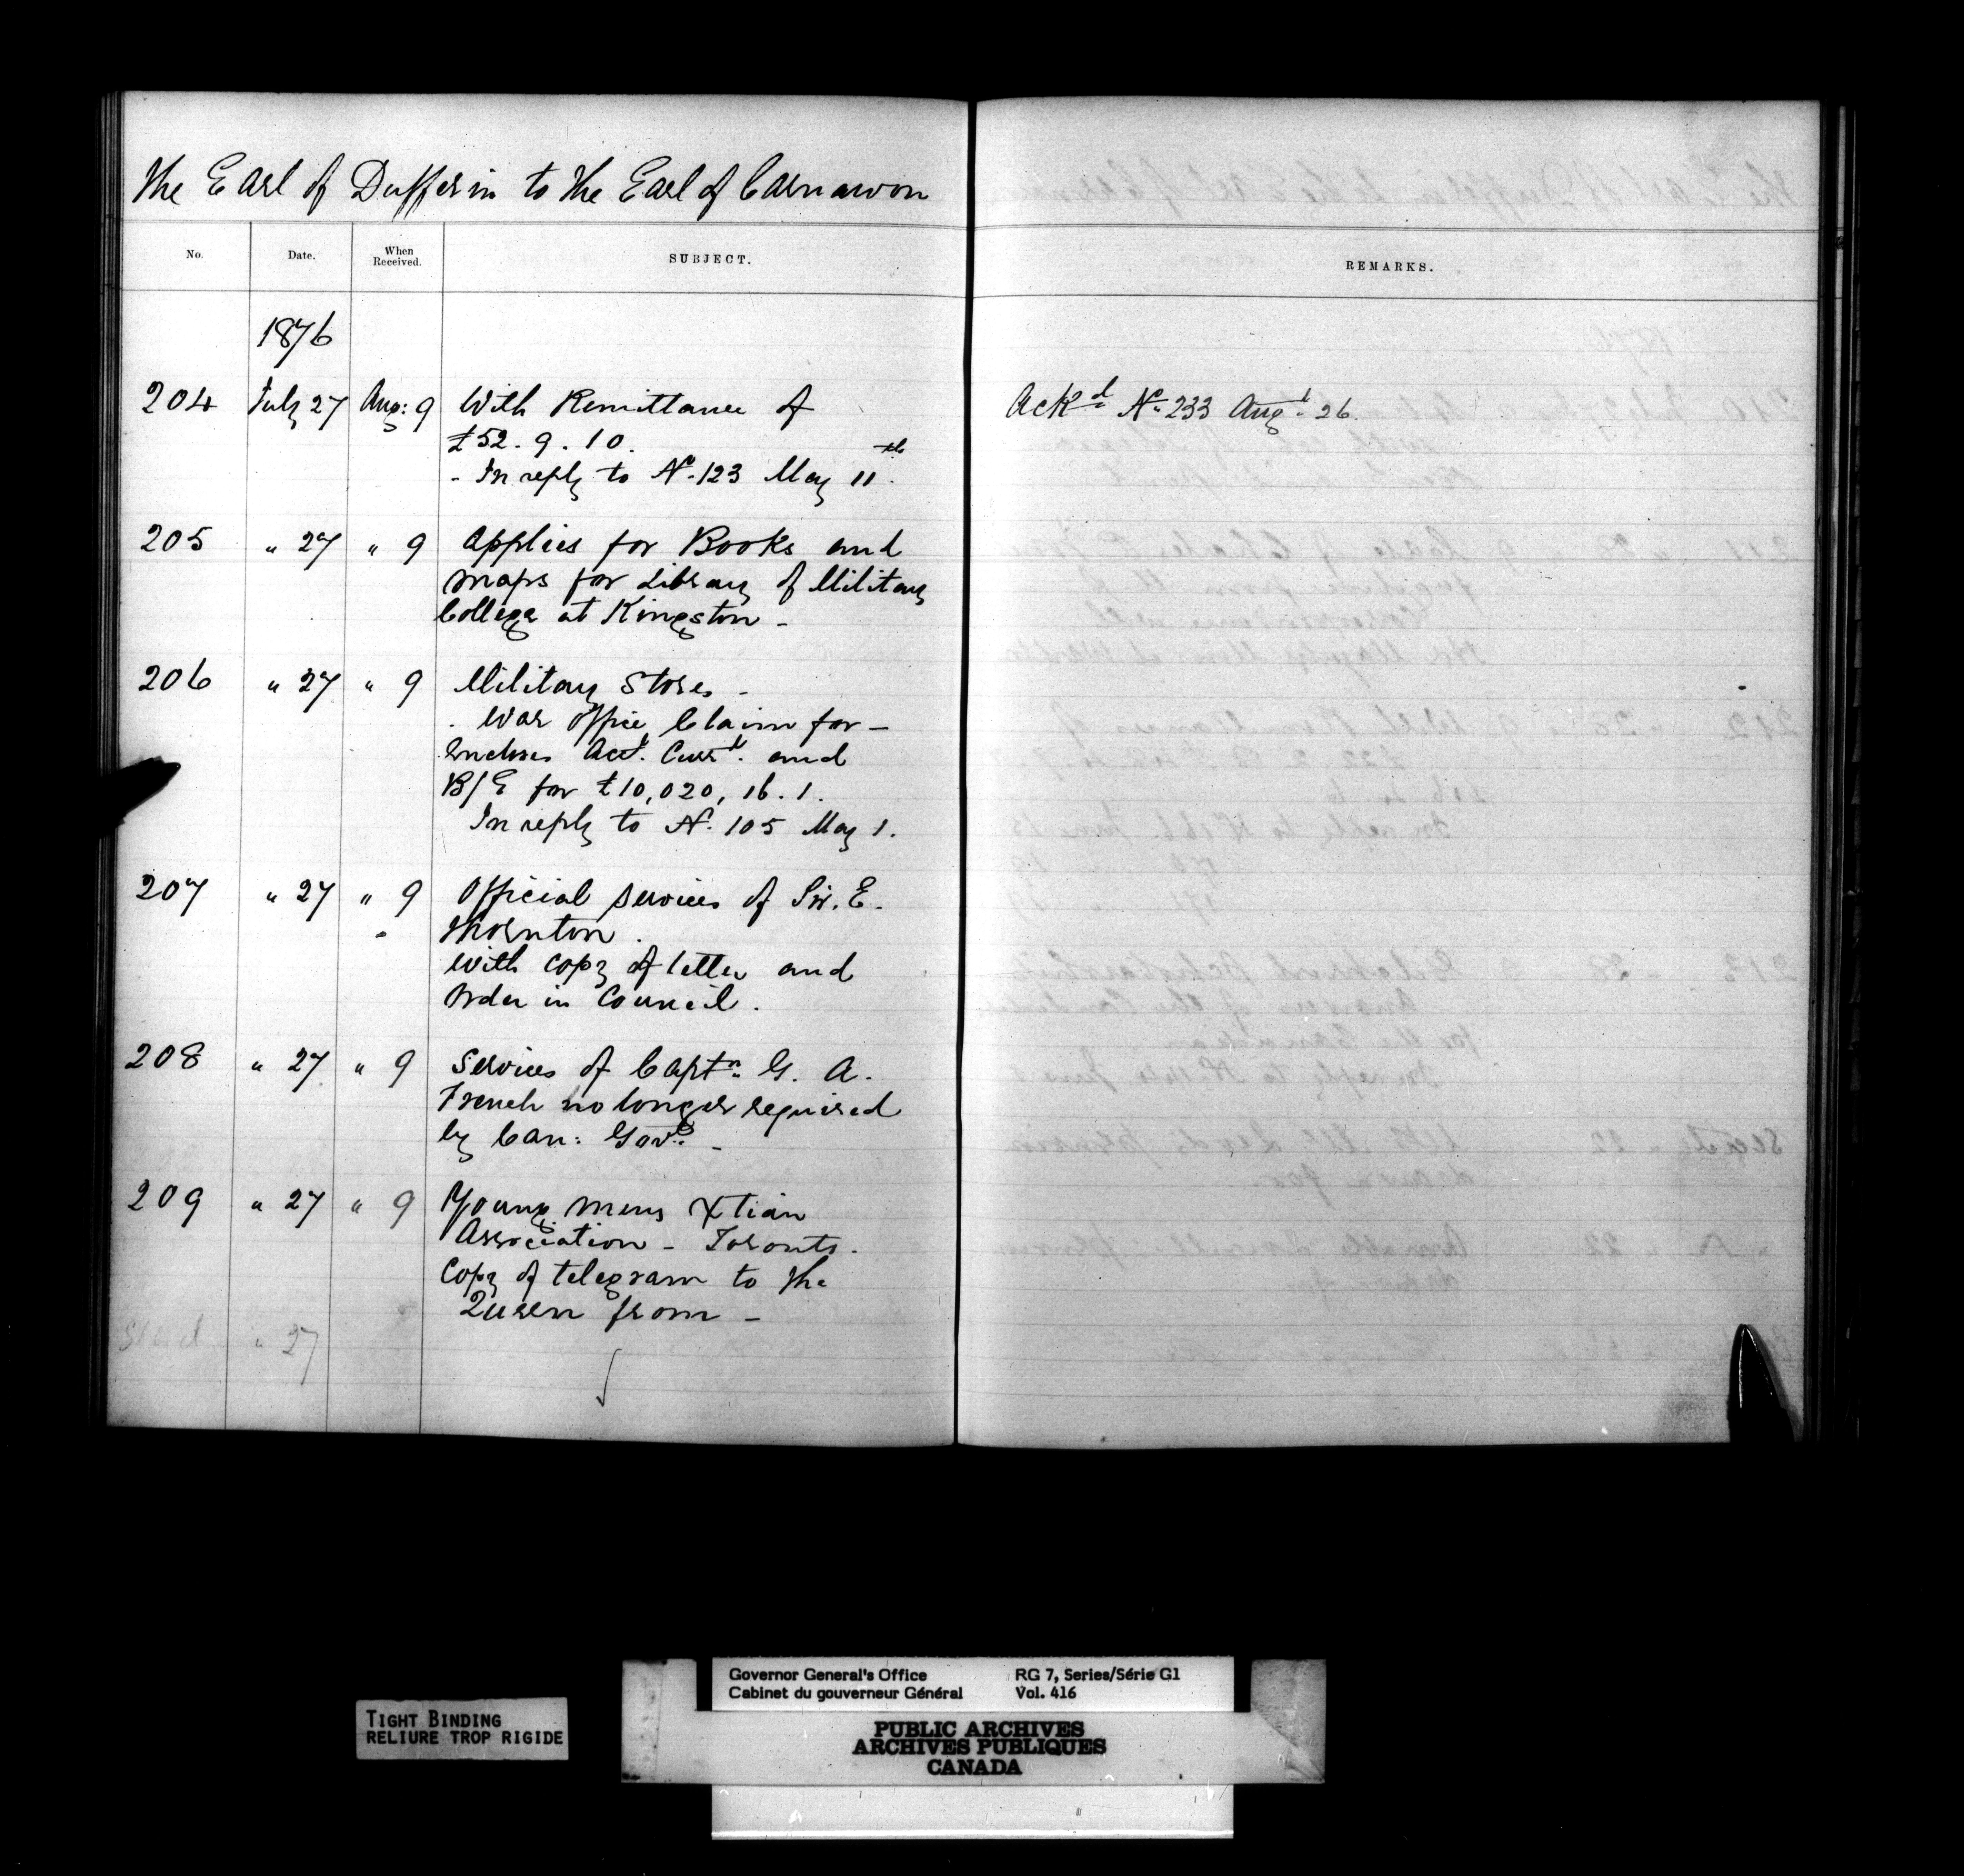 The Earl of Dufferin to the Earl of Carnarvon
No. Date. When Received. SUBJECT. REMARKS.
1876
204 July 27 Aug: 9 With Remittance of Ackd No. 233 Augt. 26.
£52. 9. 10.
- In reply to No. 123 May 11th.
205 " 27 " 9 Applies for Books and
maps for Library of Military
College at Kingston -
206 " 27 " 9 Military Stores -
- War Office Claim for -
Encloses Acct. Currt. and
B/E for £10,020, 16. 1.
In reply to No. 105 May 1.
207 " 27 " 9 Official services of Sir. E.
Thornton.
With copy of letter and
Order in Council.
208 " 27 " 9 Services of Captn. G. A.
French no longer required
by Can: Govt. -
209 " 27 " 9 Young mens Xtian
Association - Toronto.
Copy of telegram to the
Queen from -
" 27
TIGHT BINDING
RELIURE TROP RIGIDE
Governor General's Office RG 7, Series/Série G1
Cabinet du gouverneur Général Vol. 416
PUBLIC ARCHIVES
ARCHIVES PUBLIQUES
CANADA